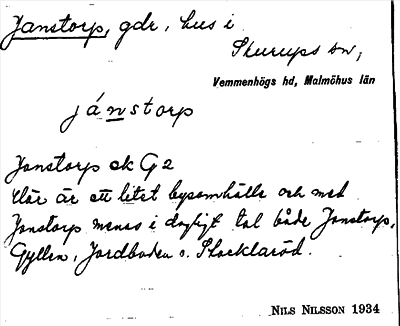 Janstorp, gdr, hus i
Skurups sn,
Vemmenhögs hd, Malmöhus län
jánstorp
Janstorp ek G2
Här är ett litet bysamhälle och med
Janstorp menas i dagligt tal både Janstorp,
Gyllen, Jordboden o. Stocklaröd.
NILS NILSSON 1934